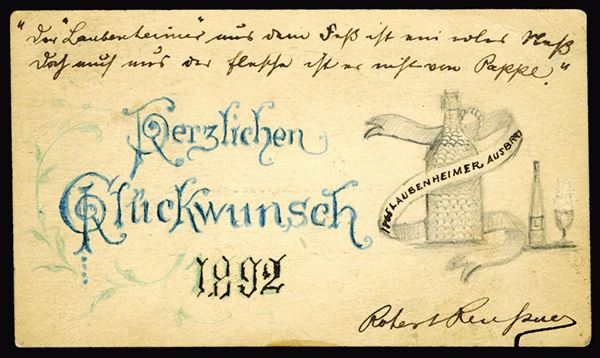 "Der "Laubenheimer" aus dem Faß ist ein edles Naß
Doch auch aus der Flasche ist er nicht von Pappe."
Herzlichen
Glückwunsch
1892
LAUBENHEIMER AUSBR
Robert